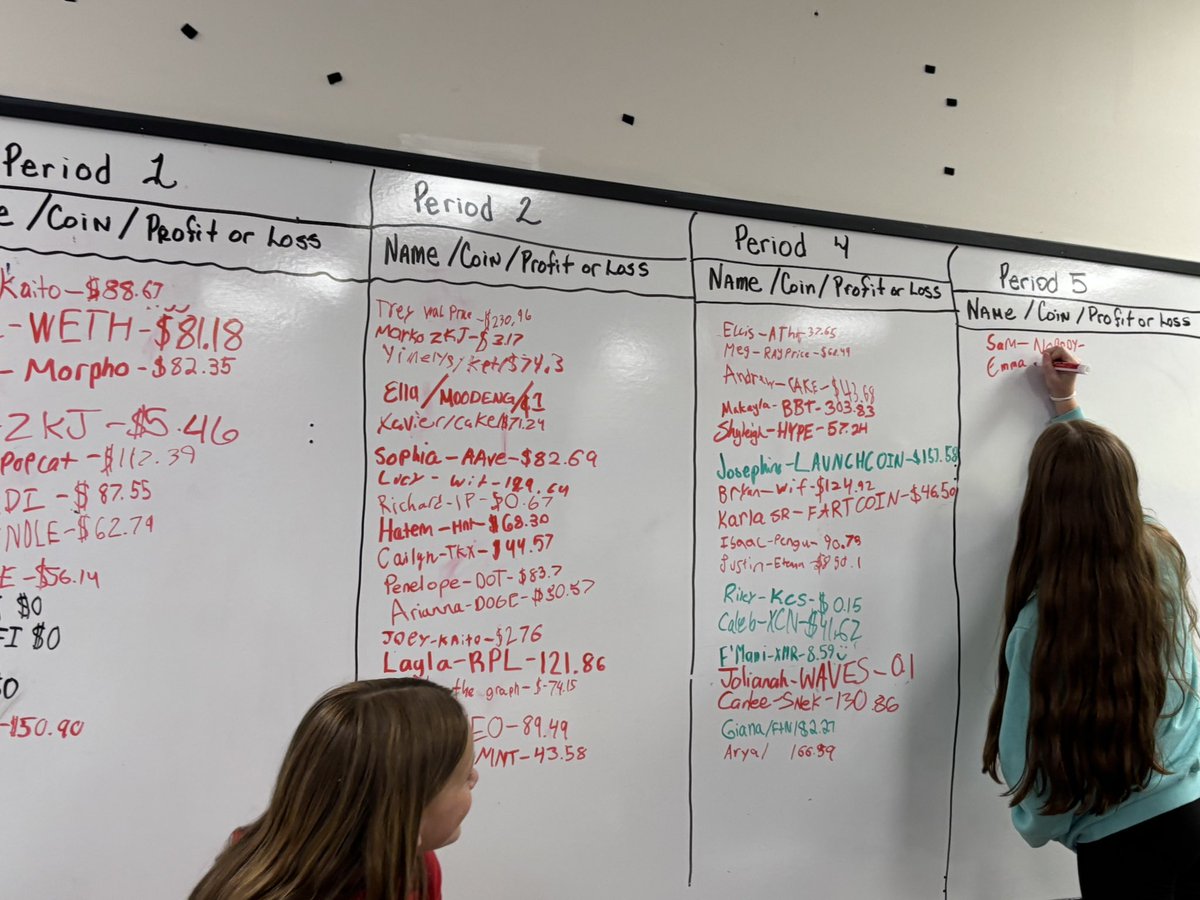 Period 1
/COIN/PROFIT or LOSS
Kaito-$88.67
-WETH-$81.18
- Morpho-$82.35
ZKJ-$5.46
popcat-$112.39
DI-$87.55
NOLE-$62.74
E-$56.14
$0
FI $0
$0
-150.90
Period 2
NAME/COIN/PROFIT or LOSS
Trey wal -$230.96
Marko ZKJ-$3.17
Yinelys/ket/$74.3
Ella/MOODENG/$1
Xavier/cake/$71.24
Sophia-AAve-$82.69
Lucy-wif-129.64
Richard-IP-$0.67
Hatem-Hnt-$68.30
Cailyn-TKX-$44.57
Penelope-DOT-$83.7
Arianna-DOGE-$50.57
Joey-Kaito-$276
Layla-RPL-121.86
the graph-$-74.15
EO-89.49
MNT-43.58
Period 4
NAME/Coin/Profit or Loss
Ellis-ATh-37.65
Meg-RAYPrice-$62.49
Andrew-CAKE-$43.68
Makayla-BBT-303.83
Shyleigh-HYPE-57.24
Josephine-LAUNCHCOIN-$157.58
Bryan-wif-$124.92
Karla SR-FARTCOIN-$46.50
Isaac-Pengu-90.78
Justin-
Riley-KCS-$0.15
Caleb-XCN-$41.62
E'Mani-XMR-8.59
Jolianah-WAVES-0.1
Carlee-SNEK-130.86
Giana/FTN/82.27
Arya/ 166.59
Period 5
NAME/COIN/Profit or Loss
Sam-
Emma